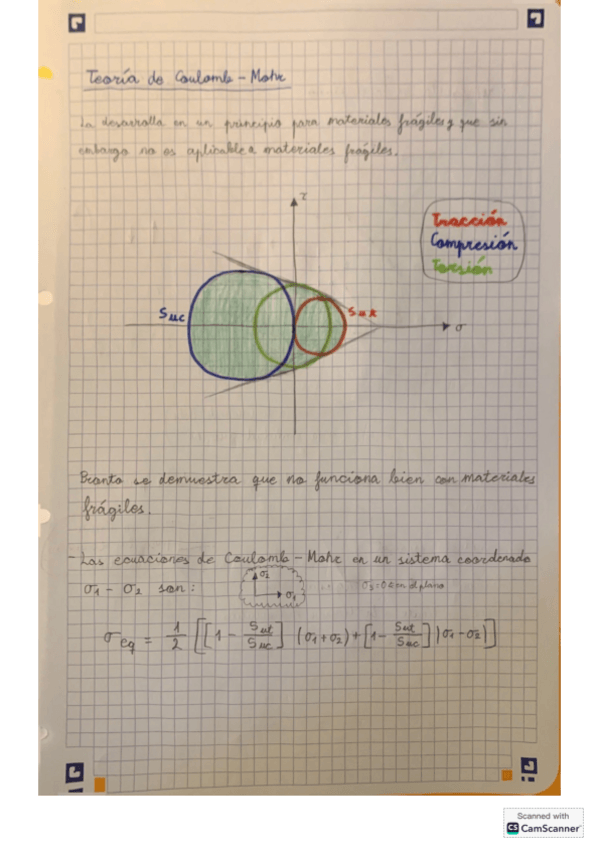 Teoría de Coulomb - Mohr
La desarrolla en un principio para materiales frágiles y que sin
embargo no es aplicable a materiales frágiles.
τ
Tracción
Compresión
Torsión
Suc
Sut
σ
Pronto se demuestra que no funciona bien con materiales
frágiles.
- Las ecuaciones de Coulomb - Mohr en un sistema coordenado
σ1 - σ2 son:
σ2
σ1
σ3=0 en el plano
σeq = 1/2 [[1 - Sut/Suc] (σ1+σ2) + [1 - Sut/Suc] |σ1-σ2|]
Scanned with
CS CamScanner